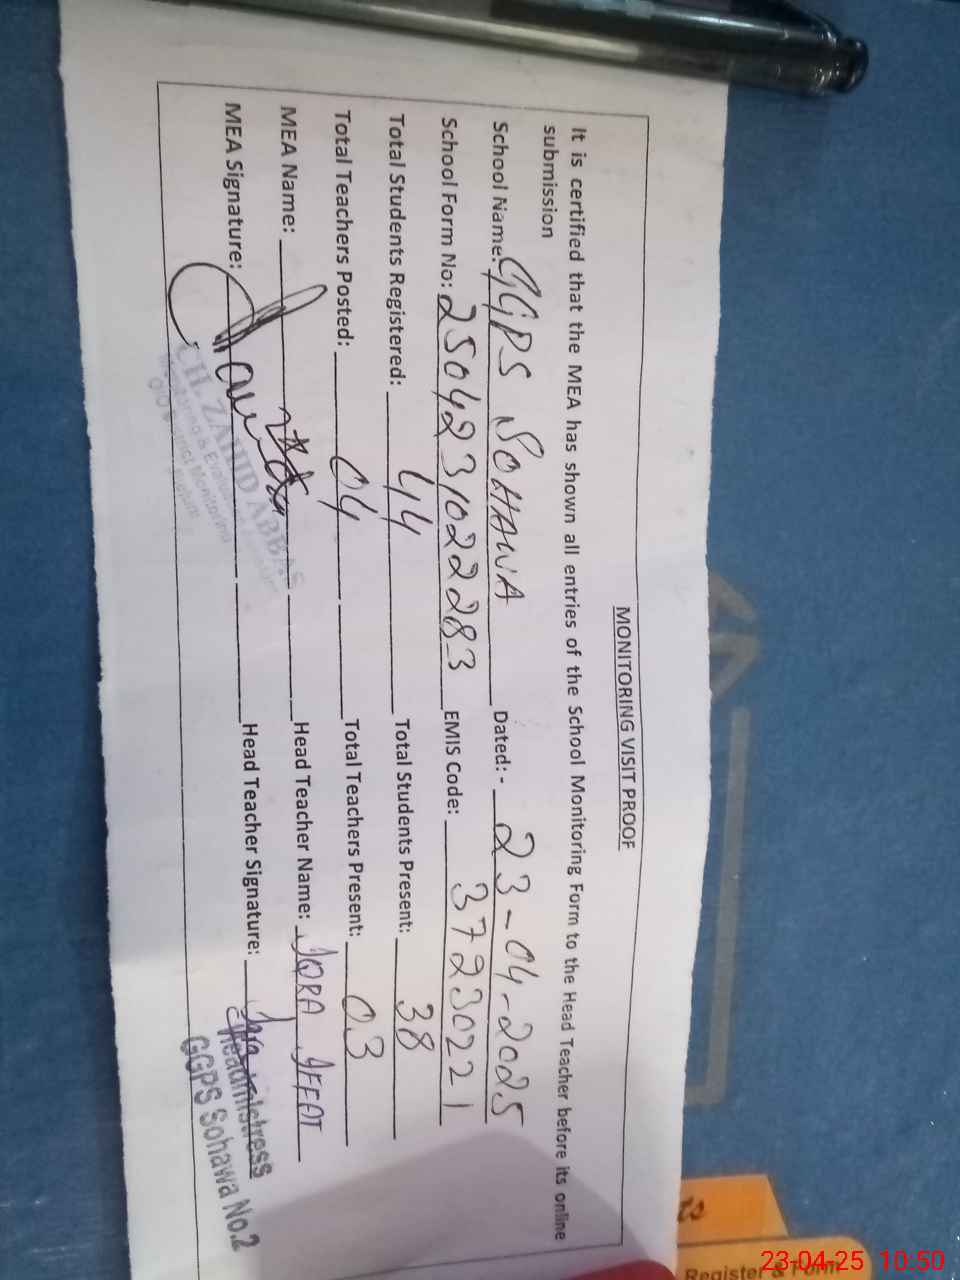 MONITORING VISIT PROOF
It is certified that the MEA has shown all entries of the School Monitoring Form to the Head Teacher before its online
submission
School Name: GGPS SOHAWA Dated:- 23-04-2025
School Form No: 2504231022283 EMIS Code: 37230221
Total Students Registered: 44 Total Students Present: 38
Total Teachers Posted: 04 Total Teachers Present: 03
MEA Name: Head Teacher Name: IQRA IFFAT
MEA Signature: Head Teacher Signature:
CH. ZAHID ABBAS
Monitoring & Evaluation
District Monitoring
Headmistress
GGPS Sohawa No.2
ts
Register & Form
23-04-25 10:50